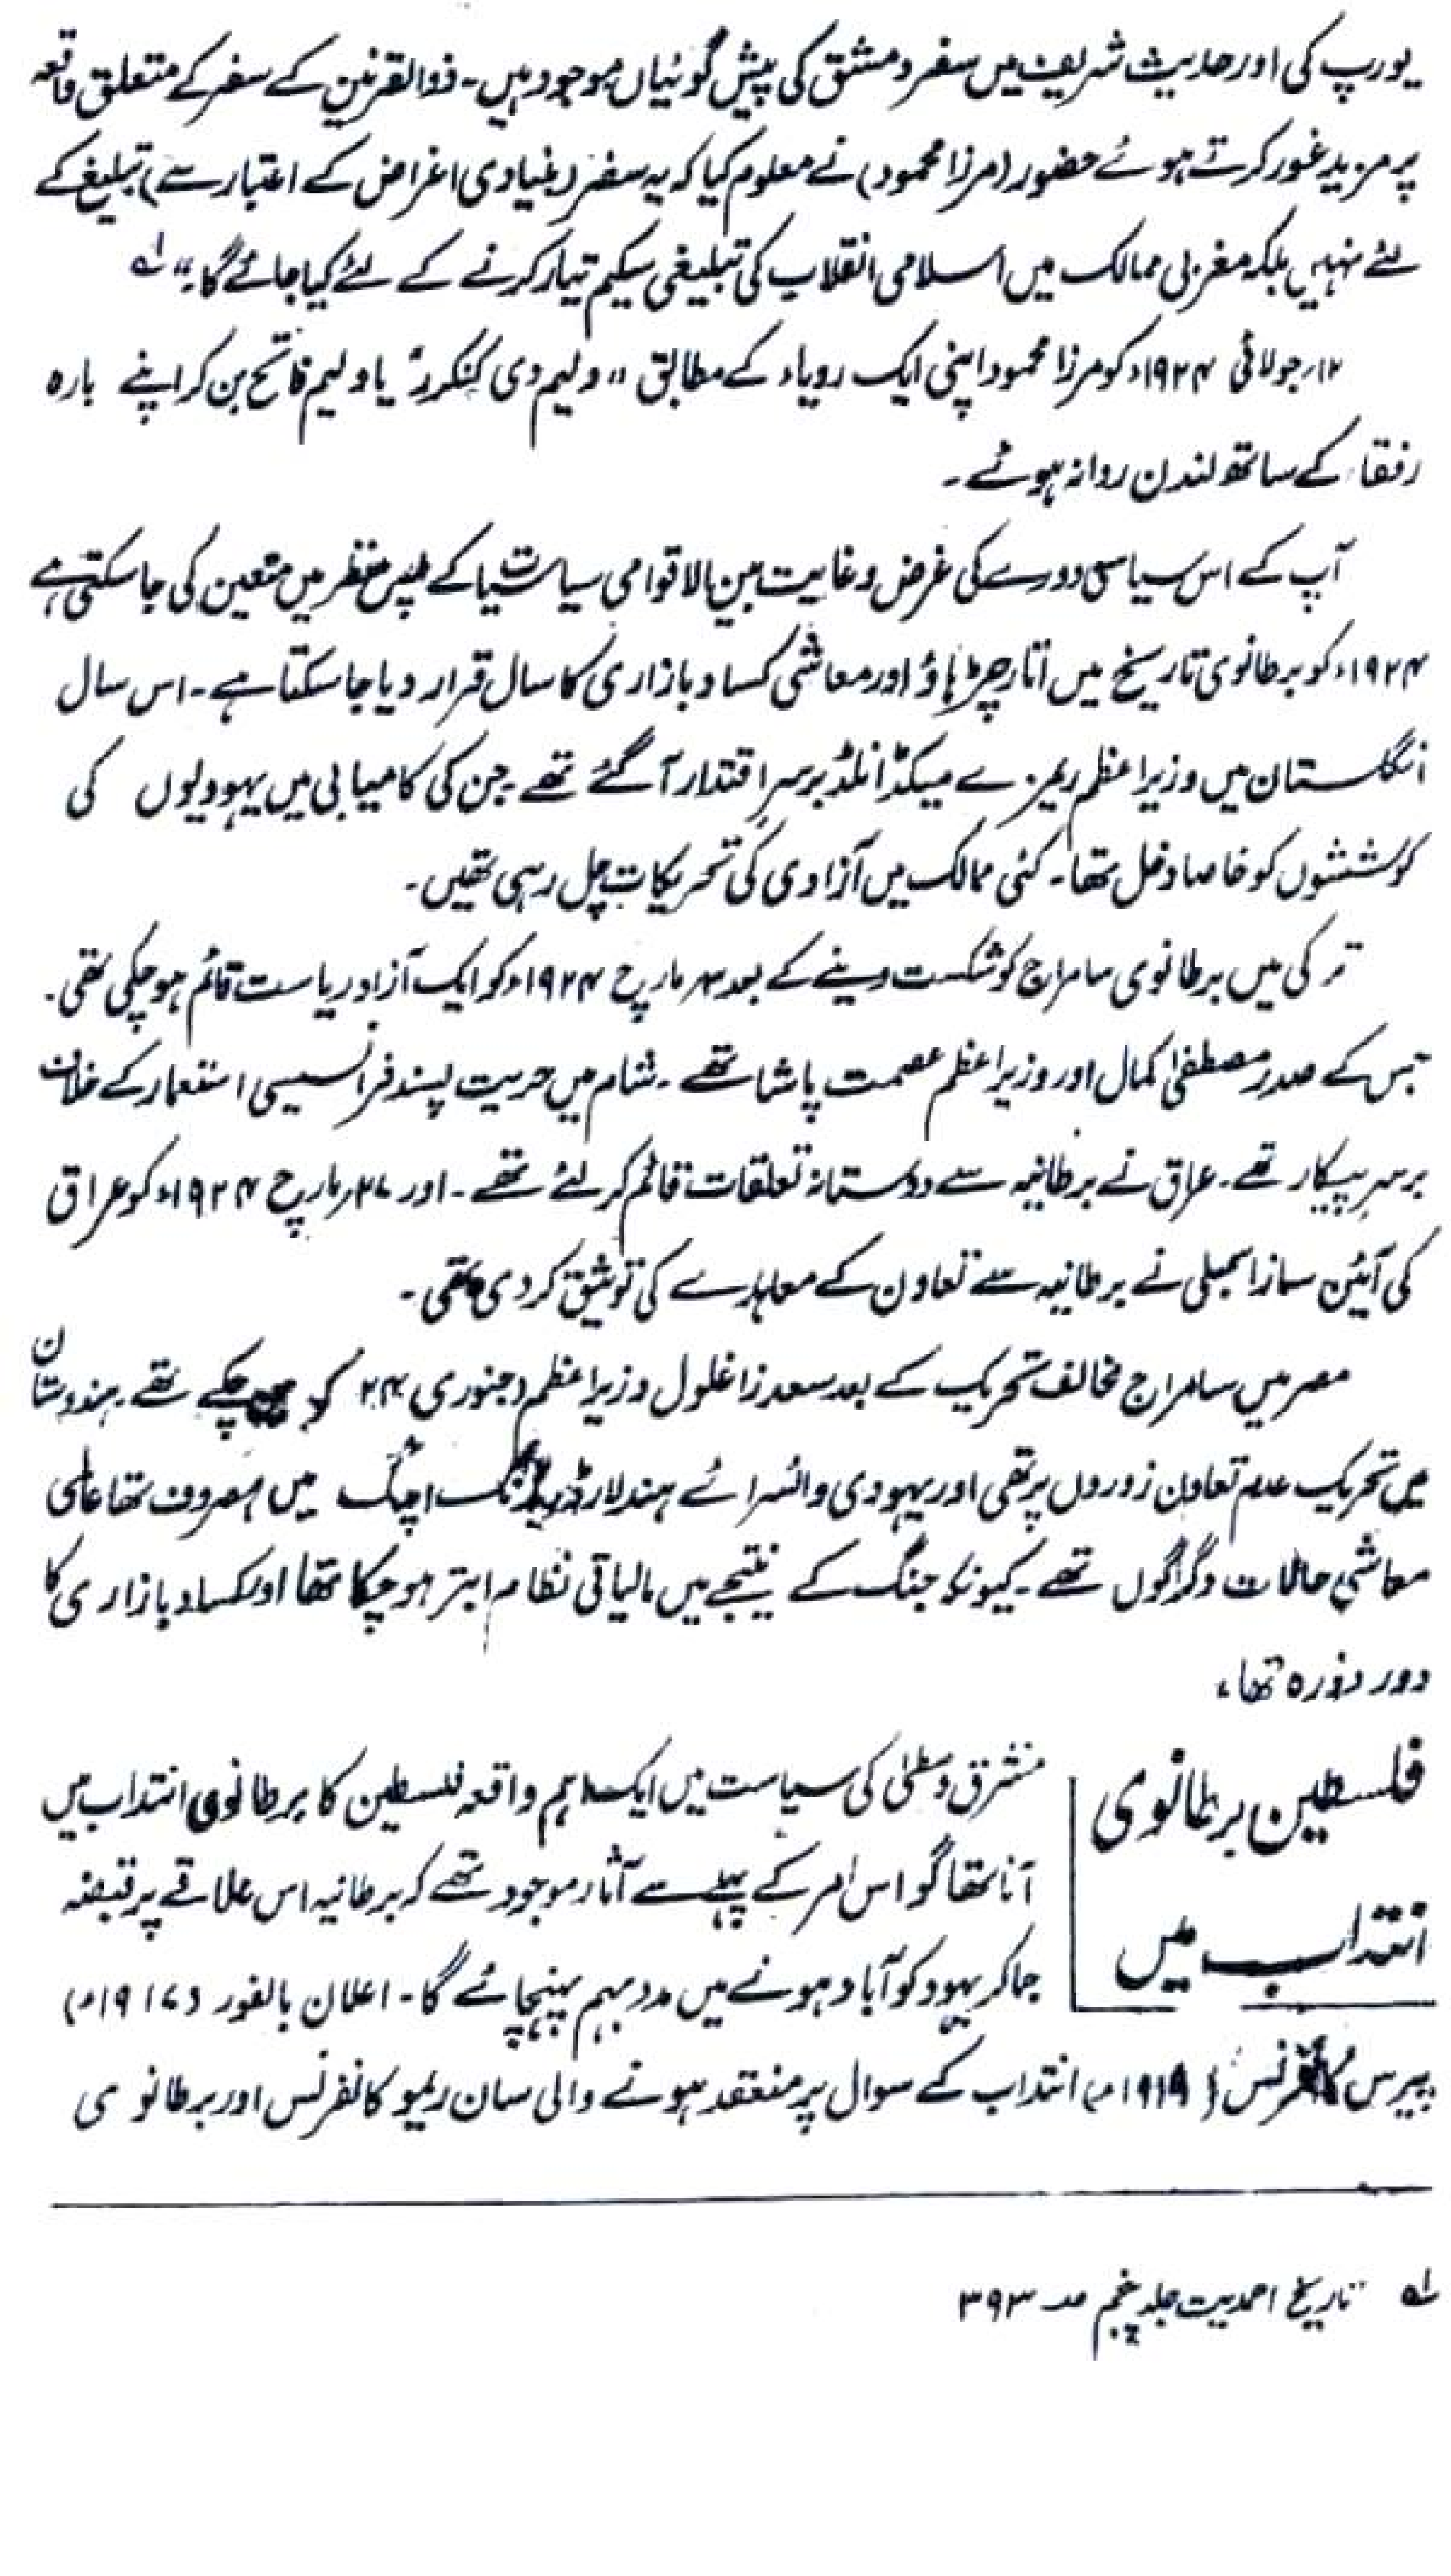 یورپ کی اور حدیث شریف میں سفر دمشق کی پیش گوئیاں موجود ہیں۔ ذوالقرنین کے سفر کے متعلق واقعہ
پر مزید غور کرتے ہوئے حضور (مرزا محمود) نے معلوم کیا کہ یہ سفر (بنیادی اغراض کے اعتبار سے) تبلیغ کے
لئے نہیں بلکہ مغربی ممالک میں اسلامی انقلاب کی تبلیغی سکیم تیار کرنے کے لئے کیا جائے گا۔" لہ
۱۲ر جولائی ۱۹۲۴ء کو مرزا محمود اپنی ایک رویاء کے مطابق "ولیم دی کنکرر" یا ولیم فاتح بن کر اپنے بارہ
رفقاء کے ساتھ لندن روانہ ہوئے۔
آپ کے اس سیاسی دورے کی غرض و غایت بین الاقوامی سیاسیات کے پس منظر میں متعین کی جا سکتی ہے
۱۹۲۴ء کو برطانوی تاریخ میں اتار چڑہاؤ اور معاشی کساد بازاری کا سال قرار دیا جا سکتا ہے۔ اس سال
انگلستان میں وزیر اعظم ریمزے میکڈانلڈ برسر اقتدار آ گئے تھے جن کی کامیابی میں یہودیوں کی
کوششوں کو خاصا دخل تھا۔ کئی ممالک میں آزادی کی تحریکات چل رہی تھیں۔
ترکی میں برطانوی سامراج کو شکست دینے کے بعد ۳ر مارچ ۱۹۲۴ء کو ایک آزاد ریاست قائم ہو چکی تھی۔
جس کے صدر مصطفیٰ کمال اور وزیر اعظم عصمت پاشا تھے۔ شام میں حریت پسند فرانسیسی استعمار کے خلاف
برسر پیکار تھے۔ عراق نے برطانیہ سے دوستانہ تعلقات قائم کر لئے تھے۔ اور ۲۷ر مارچ ۱۹۲۴ء کو عراق
کی آئین ساز اسمبلی نے برطانیہ سے تعاون کے معاہدے کی توثیق کر دی تھی۔
مصر میں سامراج مخالف تحریک کے بعد سعد زاغلول وزیر اعظم (جنوری ۲۴ء کو چکے تھے۔ ہندوستان
میں تحریک عدم تعاون زوروں پر تھی اور یہودی وائسرائے ہند لارڈ ریڈنگ اچنگ میں مصروف تھا عالمی
معاشی حالات دگرگوں تھے۔ کیونکہ جنگ کے نتیجے میں مالیاتی نظام ابتر ہو چکا تھا اور کساد بازاری کا
دور دورہ تھا،
فلسطین برطانوی
انتداب میں
مشرق وسطیٰ کی سیاست میں ایک اہم واقعہ فلسطین کا برطانوی انتداب میں
آنا تھا گو اس امر کے پہلے سے آثار موجود تھے کہ برطانیہ اس علاقے پر قبضہ
جما کر یہود کو آباد ہونے میں مدد بہم پہنچائے گا۔ اعلان بالفور (۱۹۱۷ء)
پیرس کانفرنس (۱۹۱۹ء) انتداب کے سوال پر منعقد ہونے والی سان ریمو کانفرنس اور برطانوی
لہ تاریخ احمدیت جلد پنجم صہ ۳۹۳